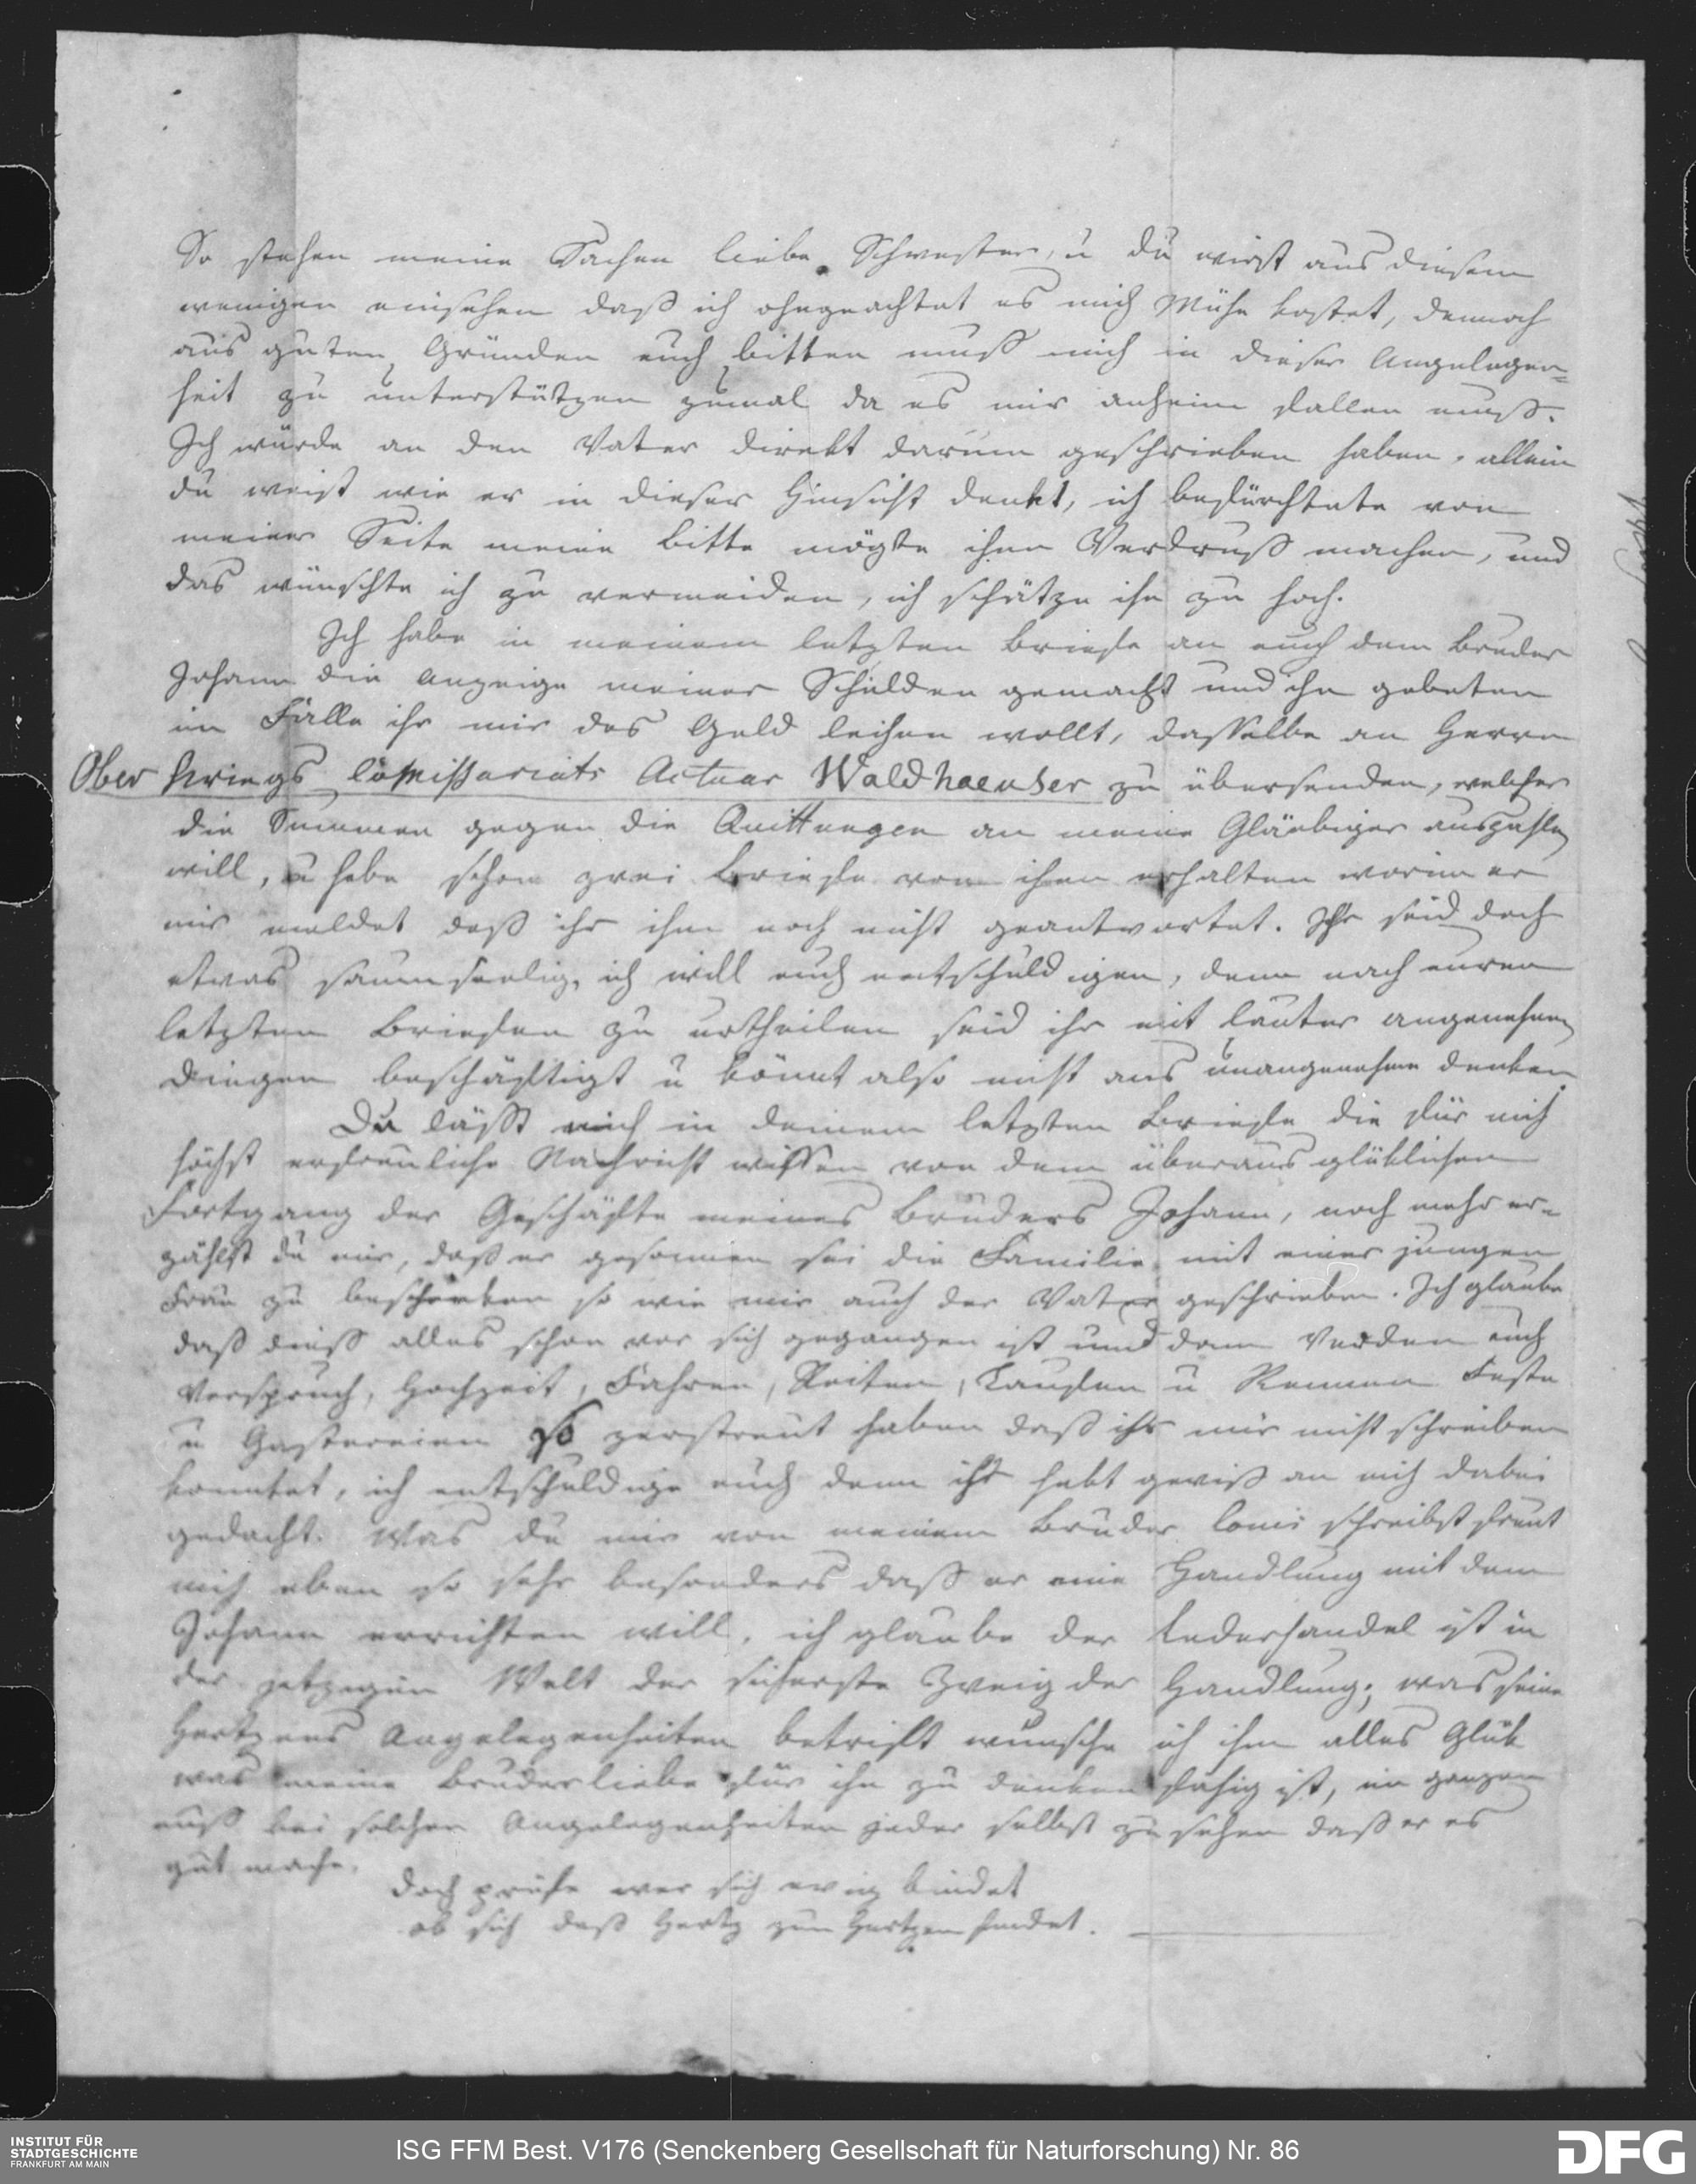 So stehen meine Sachen liebe Schwester, u du wirst aus diesem
wenigen einsehen daß ich ohngeachtet es mich Mühe kostet, dennoch
aus guten Gründen euch bitten muß mich in dieser Angelegen=
heit zu unterstützen zumal da es mir anheim fallen muß.
Ich würde an den Vater direkt darum geschrieben haben, allein
du weist wie er in dieser Hinsicht denkt, ich befürchtete von
meiner Seite meine Bitte mögte ihm Verdruß machen, und
das wünschte ich zu vermeiden, ich schätze ihn zu hoch.
Ich habe in meinem letzten Briefe an euch dem Bruder
Johann die Anzeige meiner Schulden gemacht und ihn gebeten
im Falle ihr mir das Geld leihen wollt, dasselbe an Herrn
Ober Kriegs Comissariats Actuar Waldhaeuser zu übersenden, welcher
die Summen gegen die Quittungen an meine Gläubiger auszahlen
will, u habe schon zwei Briefe von ihm erhalten worin er
mir meldet daß ihr ihm noch nicht geantwortet. Ihr seid doch
etwas saumseelig, ich will euch entschuldigen, denn nach euren
letzten Briefen zu urtheilen seid ihr mit lauter angenehmen
Dingen beschäftigt u könnt also nicht ans unangenehme denken
Du läßt mich in deinem letzten Briefe die für mich
höchst erfreuliche Nachricht wissen von dem überaus glüklichen
Fortgang der Geschäfte meines Bruders Johann, noch mehr er-
zählst du mir, daß er gesonnen sei die Familie mit einer jungen
Frau zu beschenken so wie mir auch der Vater geschrieben. Ich glaube
daß dieß alles schon vor sich gegangen ist und dann werden euch
Verspruch, Hochzeit, Fahren, Reiten, Laufen u Rennen Feste
u Gastereien so zerstreut haben daß ihr mir nicht schreiben
konntet, ich entschuldige euch denn ihr habt gewiß an mich dabei
gedacht. Was du mir von meinem Bruder Louis schreibst freut
mich eben so sehr besonders daß er eine Handlung mit dem
Johann errichten will, ich glaube der Lederhandel ist in
der jetzigen Welt der sicherste Zweig der Handlung; was seine
Hertzens Angelegenheiten betrifft wünsche ich ihm alles Glük
was meine Bruderliebe für ihn zu denken fähig ist, im ganzen
muß bei solchen Angelegenheiten jeder selbst zusehen daß er es
gut mache.
doch prüfe wer sich ewig bindet
ob sich daß Hertz zum Hertzen findet.
INSTITUT FÜR
STADTGESCHICHTE
FRANKFURT AM MAIN
ISG FFM Best. V176 (Senckenberg Gesellschaft für Naturforschung) Nr. 86
DFG